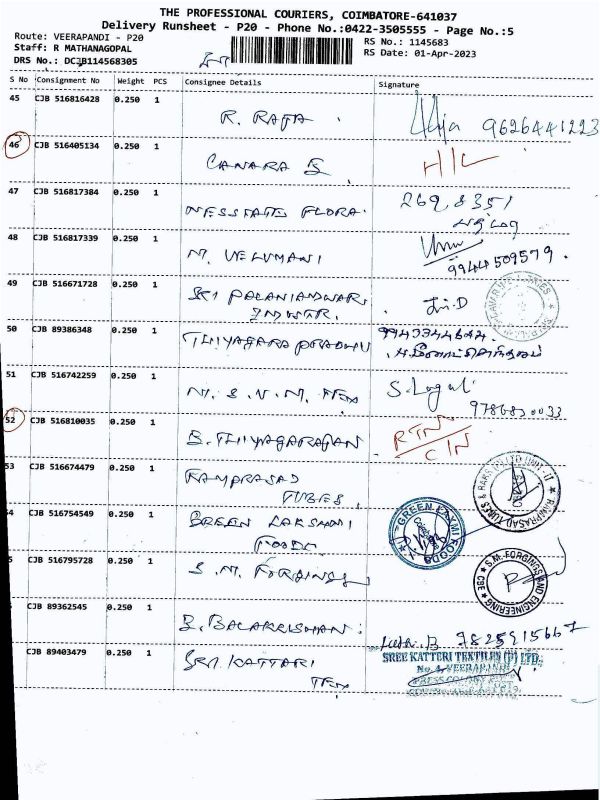 THE PROFESSIONAL COURIERS, COIMBATORE-641037
Delivery Runsheet - P20 - Phone No.:0422-3505555 - Page No.:5
Route: VEERAPANDI - P20
RS No.: 1145683
Staff: R MATHANAGOPAL
RS Date: 01-Apr-2023
DRS No.: DCJB114568305
S No Consignment No Weight PCS Consignee Details Signature
45 CJB 516816428 0.250 1 R. RAJA. 9626441223
46 CJB 516405134 0.250 1 CANARA H/L
47 CJB 516817384 0.250 1 FLORA.
48 CJB 516817339 0.250 1 M. VELUMANI 9944509579.
49 CJB 516671728 0.250 1 SRI PALANIANDWAR
50 CJB 89386348 0.250 1 THIYAGARA PRABHU 9943344644.
51 CJB 516742259 0.250 1 M. S. N. M. TEX S. Logu
52 CJB 516810035 0.250 1 B. THIYAGARAJAN RTN
C/N
53 CJB 516674479 0.250 1 RAMPRASAD
TUBES
RAMPRASAD TUBES & BARS (P) LTD UNIT II
4 CJB 516754549 0.250 1 GREEN LAKSHMI
FOODS
GREEN LAXMI FOODS
5 CJB 516795728 0.250 1 S. M. FORGINGS
S.M. FORGINGS AND ENGINEERING CBE
CJB 89362545 0.250 1 B. BALAKRISHNAN.
CJB 89403479 0.250 1 SREE KATTARI
TEX
SREE KATTERI TEXTILES (P) LTD.,
No.4, VEERAPANDI
PRESS COLONY POST